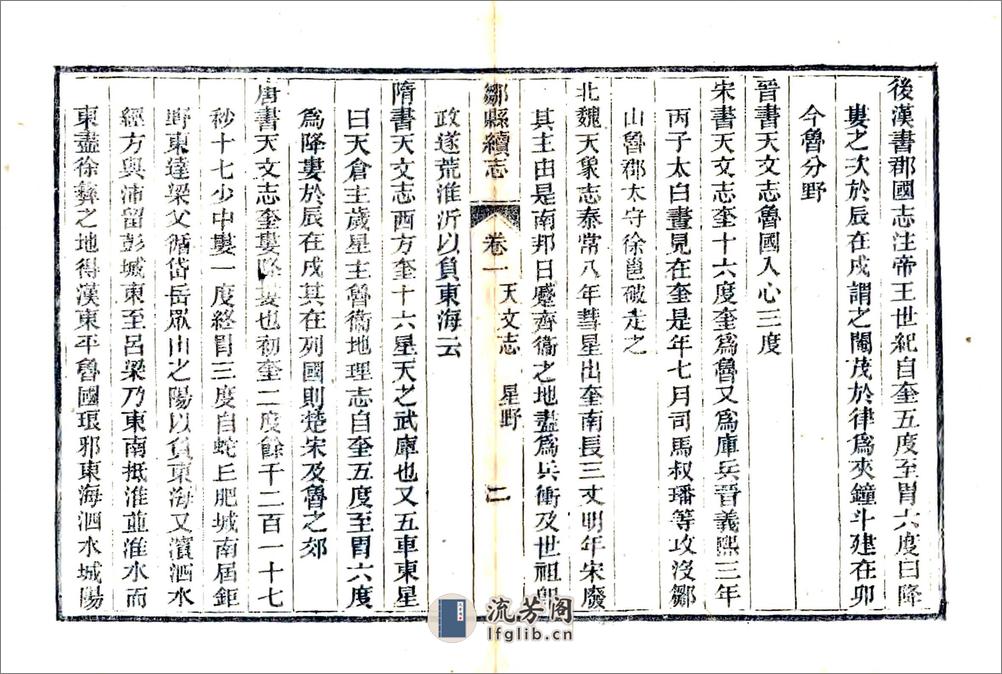 後漢書郡國志注帝王世紀自奎五度至胃六度曰降
婁之次於辰在戌謂之閹茂於律爲夾鐘斗建在卯
今魯分野
晉書天文志魯國入心三度
宋書天文志奎十六度奎爲魯又爲庫兵晉義熙三年
丙子太白晝見在奎是年七月司馬叔璠等攻沒鄒
山魯郡太守徐邕破走之
北魏天象志泰常八年彗星出奎南長三丈明年宋廢
其主由是南邦日蹙齊衞之地盡爲兵衝及世祖卽
政遂荒淮沂以負東海云
鄒縣續志
卷一
天文志
星野
二
隋書天文志西方奎十六星天之武庫也又五車東星
曰天倉主歲星主魯衞地理志自奎五度至胃六度
爲降婁於辰在戌其在列國則楚宋及魯之郊
唐書天文志奎婁降婁也初奎二度餘千二百一十七
秒十七少中婁一度終胃三度自蛇丘肥城南屆鉅
野東達梁父循岱岳眾山之陽以負東海又濱泗水
經方與沛留彭城東至呂梁乃東南抵淮並淮水而
東盡徐彝之地得漢東平魯國琅邪東海泗水城陽
流芳阁
lfglib.cn